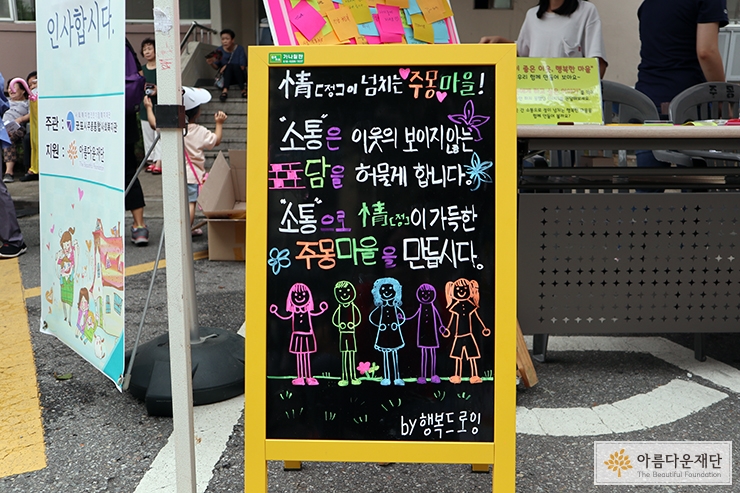 인사합시다.
주관 :
지원 : 아름다운재단
情[정]이 넘치는 주몽마을!
"소통"은 이웃의 보이지않는
담을 허물게 합니다.
"소통"으로 情[정]이 가득한
주몽마을을 만듭시다.
by 행복드로잉
아름다운재단
The Beautiful Foundation